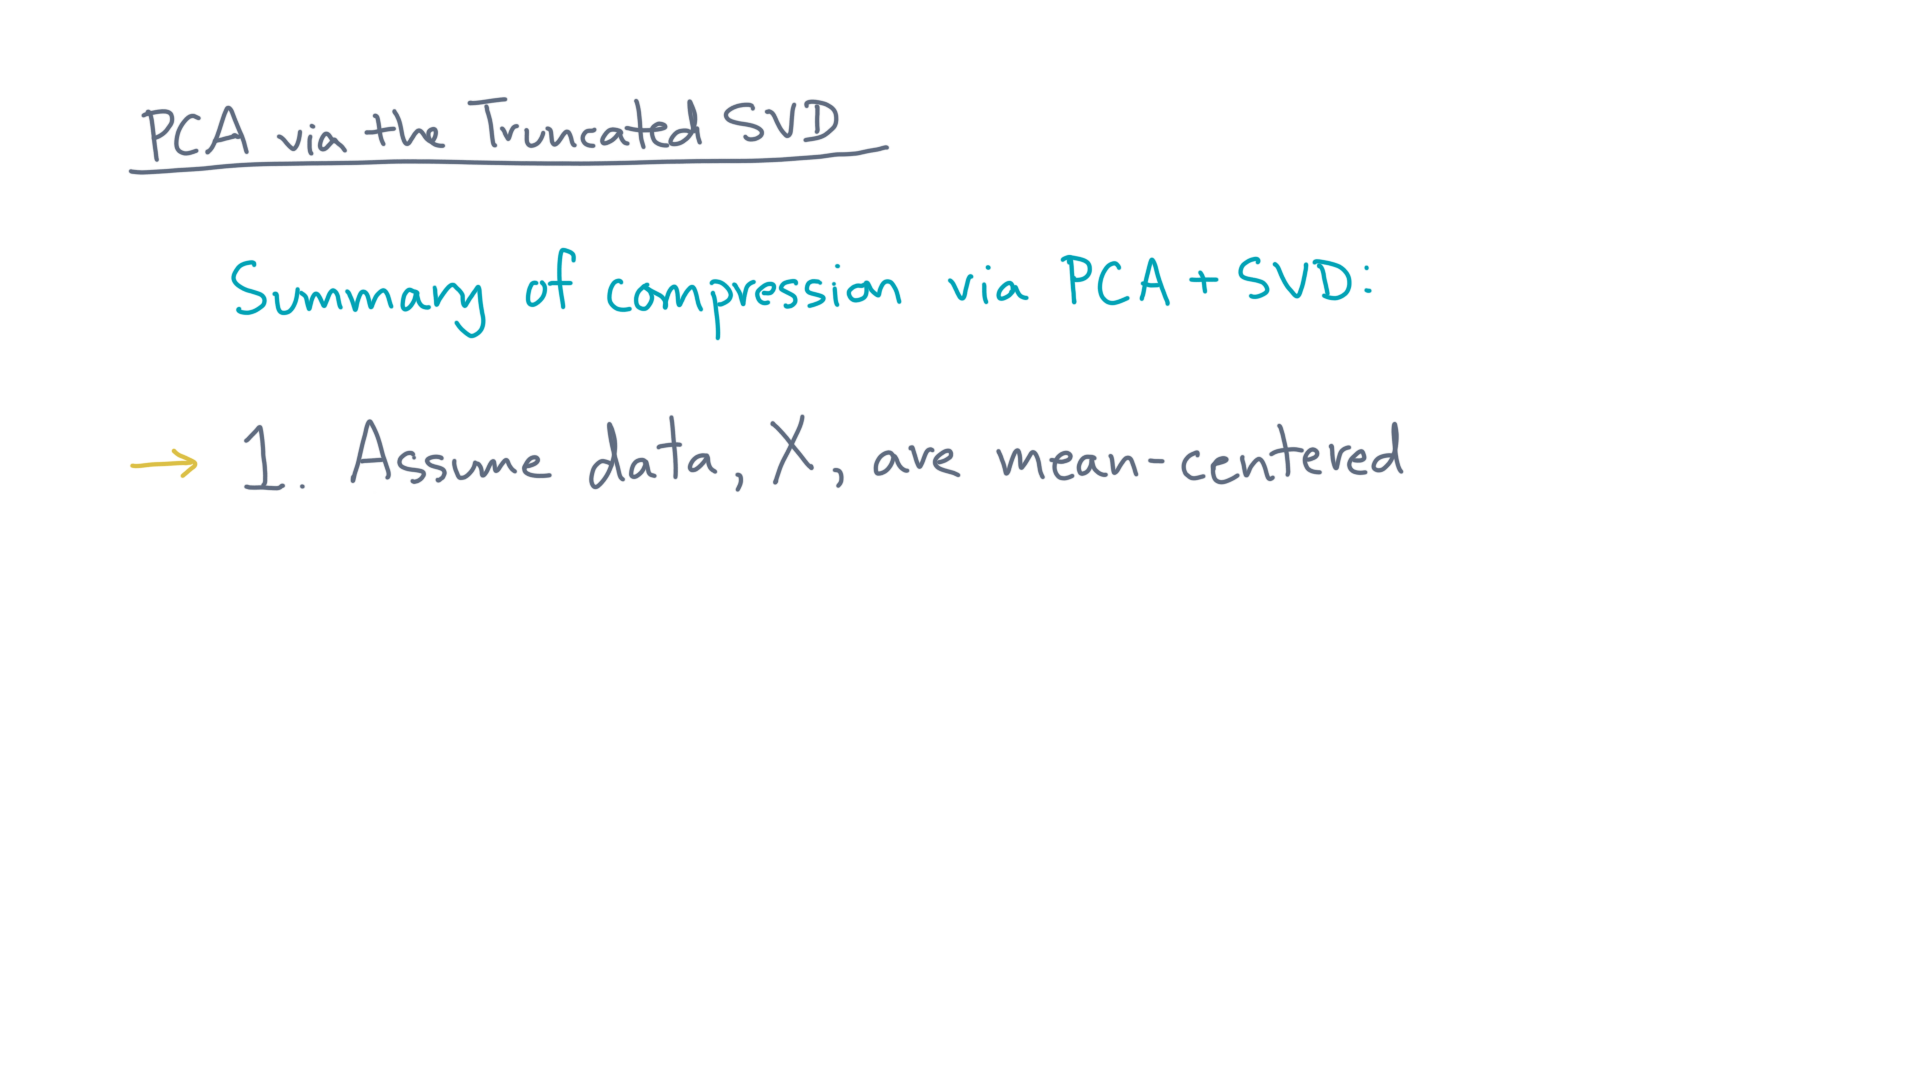 PCA via the Truncated SVD
Summary of compression via PCA + SVD:
→ 1. Assume data, X, are mean-centered